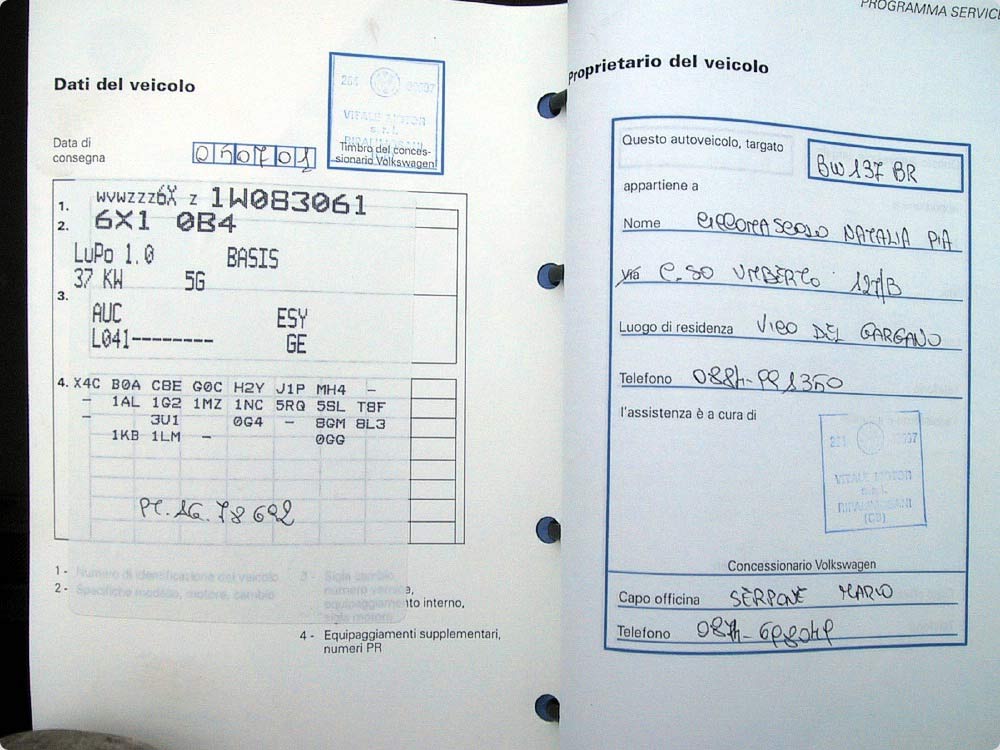 Dati del veicolo
Data di
consegna
050701
VITALE MOTOR
s.r.l.
Timbro del conces-
sionario Volkswagen
1.
WVWZZZ6X Z 1W083061
2.
6X1 0B4
LuPo 1.0 BASIS
37 KW 5G
3.
AUC ESY
L041-------- GE
4. X4C B0A C8E G0C H2Y J1P MH4 -
- 1AL 1G2 1MZ 1NC 5RQ 5SL T8F
- 3U1 0G4 - 8GM 8L3
1KB 1LM - 0GG
PT.16.78692
1 - Numero di identificazione del veicolo
2 - Specifiche modello, motore, cambio
3 - Sigla cambio,
numero vernice,
equipaggiamento interno,
sigla motore
4 - Equipaggiamenti supplementari,
numeri PR
PROGRAMMA SERVICE
Proprietario del veicolo
Questo autoveicolo, targato
BW137BR
appartiene a
Nome NATALIA PIA
Via C.SO UMBERTO 127/B
Luogo di residenza VICO DEL GARGANO
Telefono 0884-991350
l'assistenza è a cura di
VITALE MOTOR
s.r.l.
RIPALIMOSANI
(CB)
Concessionario Volkswagen
Capo officina SERPONE MARIO
Telefono